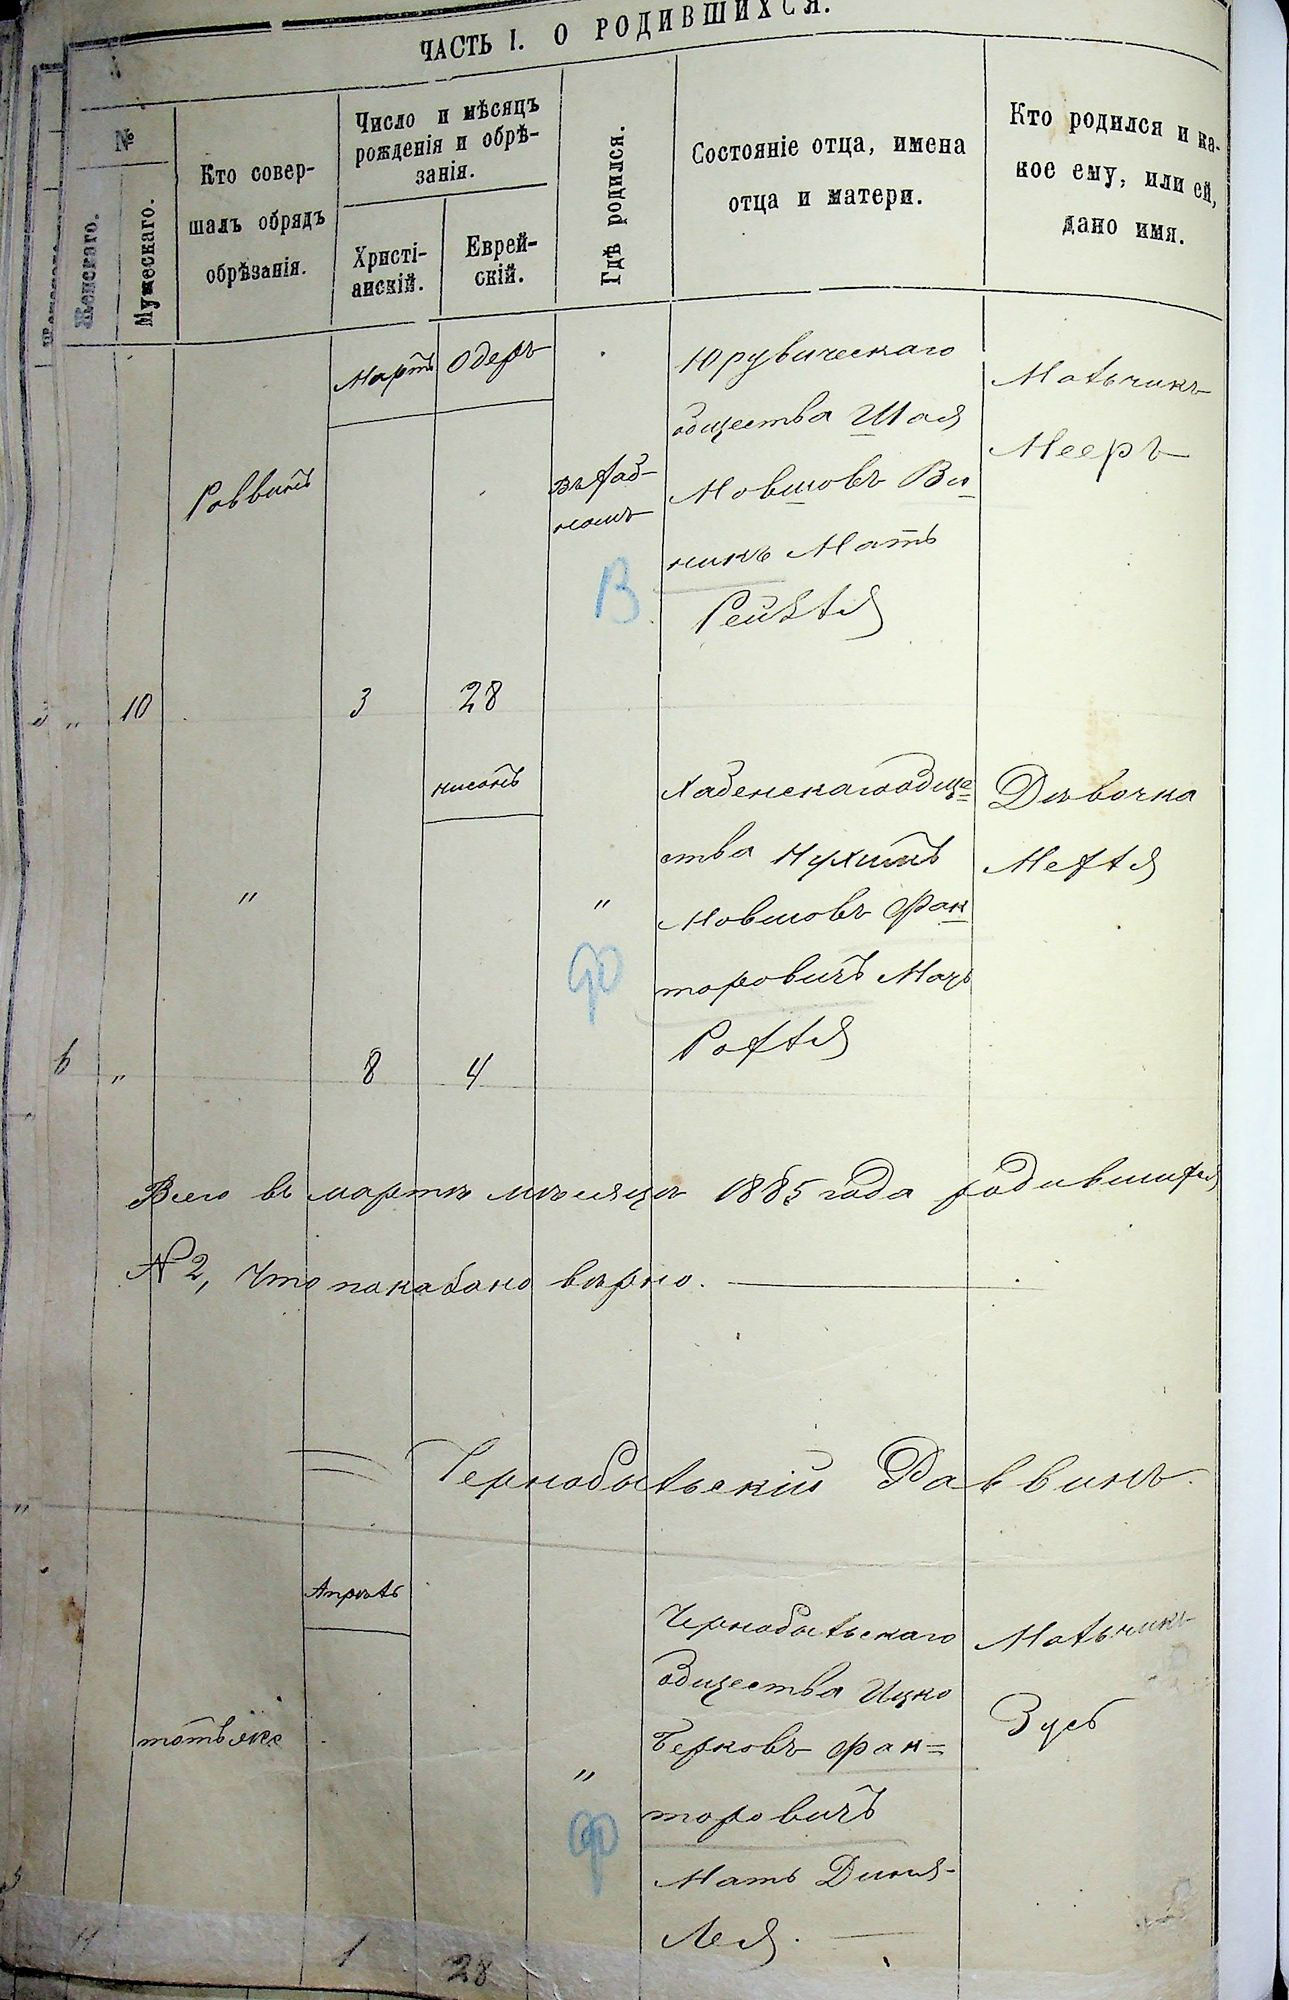 ЧАСТЬ I. О РОДИВШИХСЯ.
№
Женскаго.
Мужескаго.
Кто совер-
шалъ обрядъ
обрѣзанія.
Число и мѣсяцъ
рожденія и обрѣ-
занія.
Христі-
анскій.
Еврей-
скій.
Гдѣ родился.
Состояніе отца, имена
отца и матери.
Кто родился и ка-
кое ему, или ей,
дано имя.
Мартъ
Одеръ
Раввинъ
3
28
„
10
В
Юрувическаго
общества Шая
Мовшовъ Ви-
никъ Мать
Рейзля
Мальчикъ
Мееръ
6
„
"
8
нисонъ
4
"
Ф
Хабенскаго обще=
ства Нухимъ
Мовшовъ Фак
торовичъ Мать
Рахля
Дѣвочка
Нехля
Всего въ мартѣ мѣсяцѣ 1885 года родившихся
№ 2, что показано вѣрно.
Чернобыльскій Раввинъ.
тотъ же
Апрѣль
1
28
"
Ф
Чернобыльскаго
общества Ицко
Берковъ Фак=
торовичъ
Мать Диня-
Лея.
Мальчикъ
Зусь